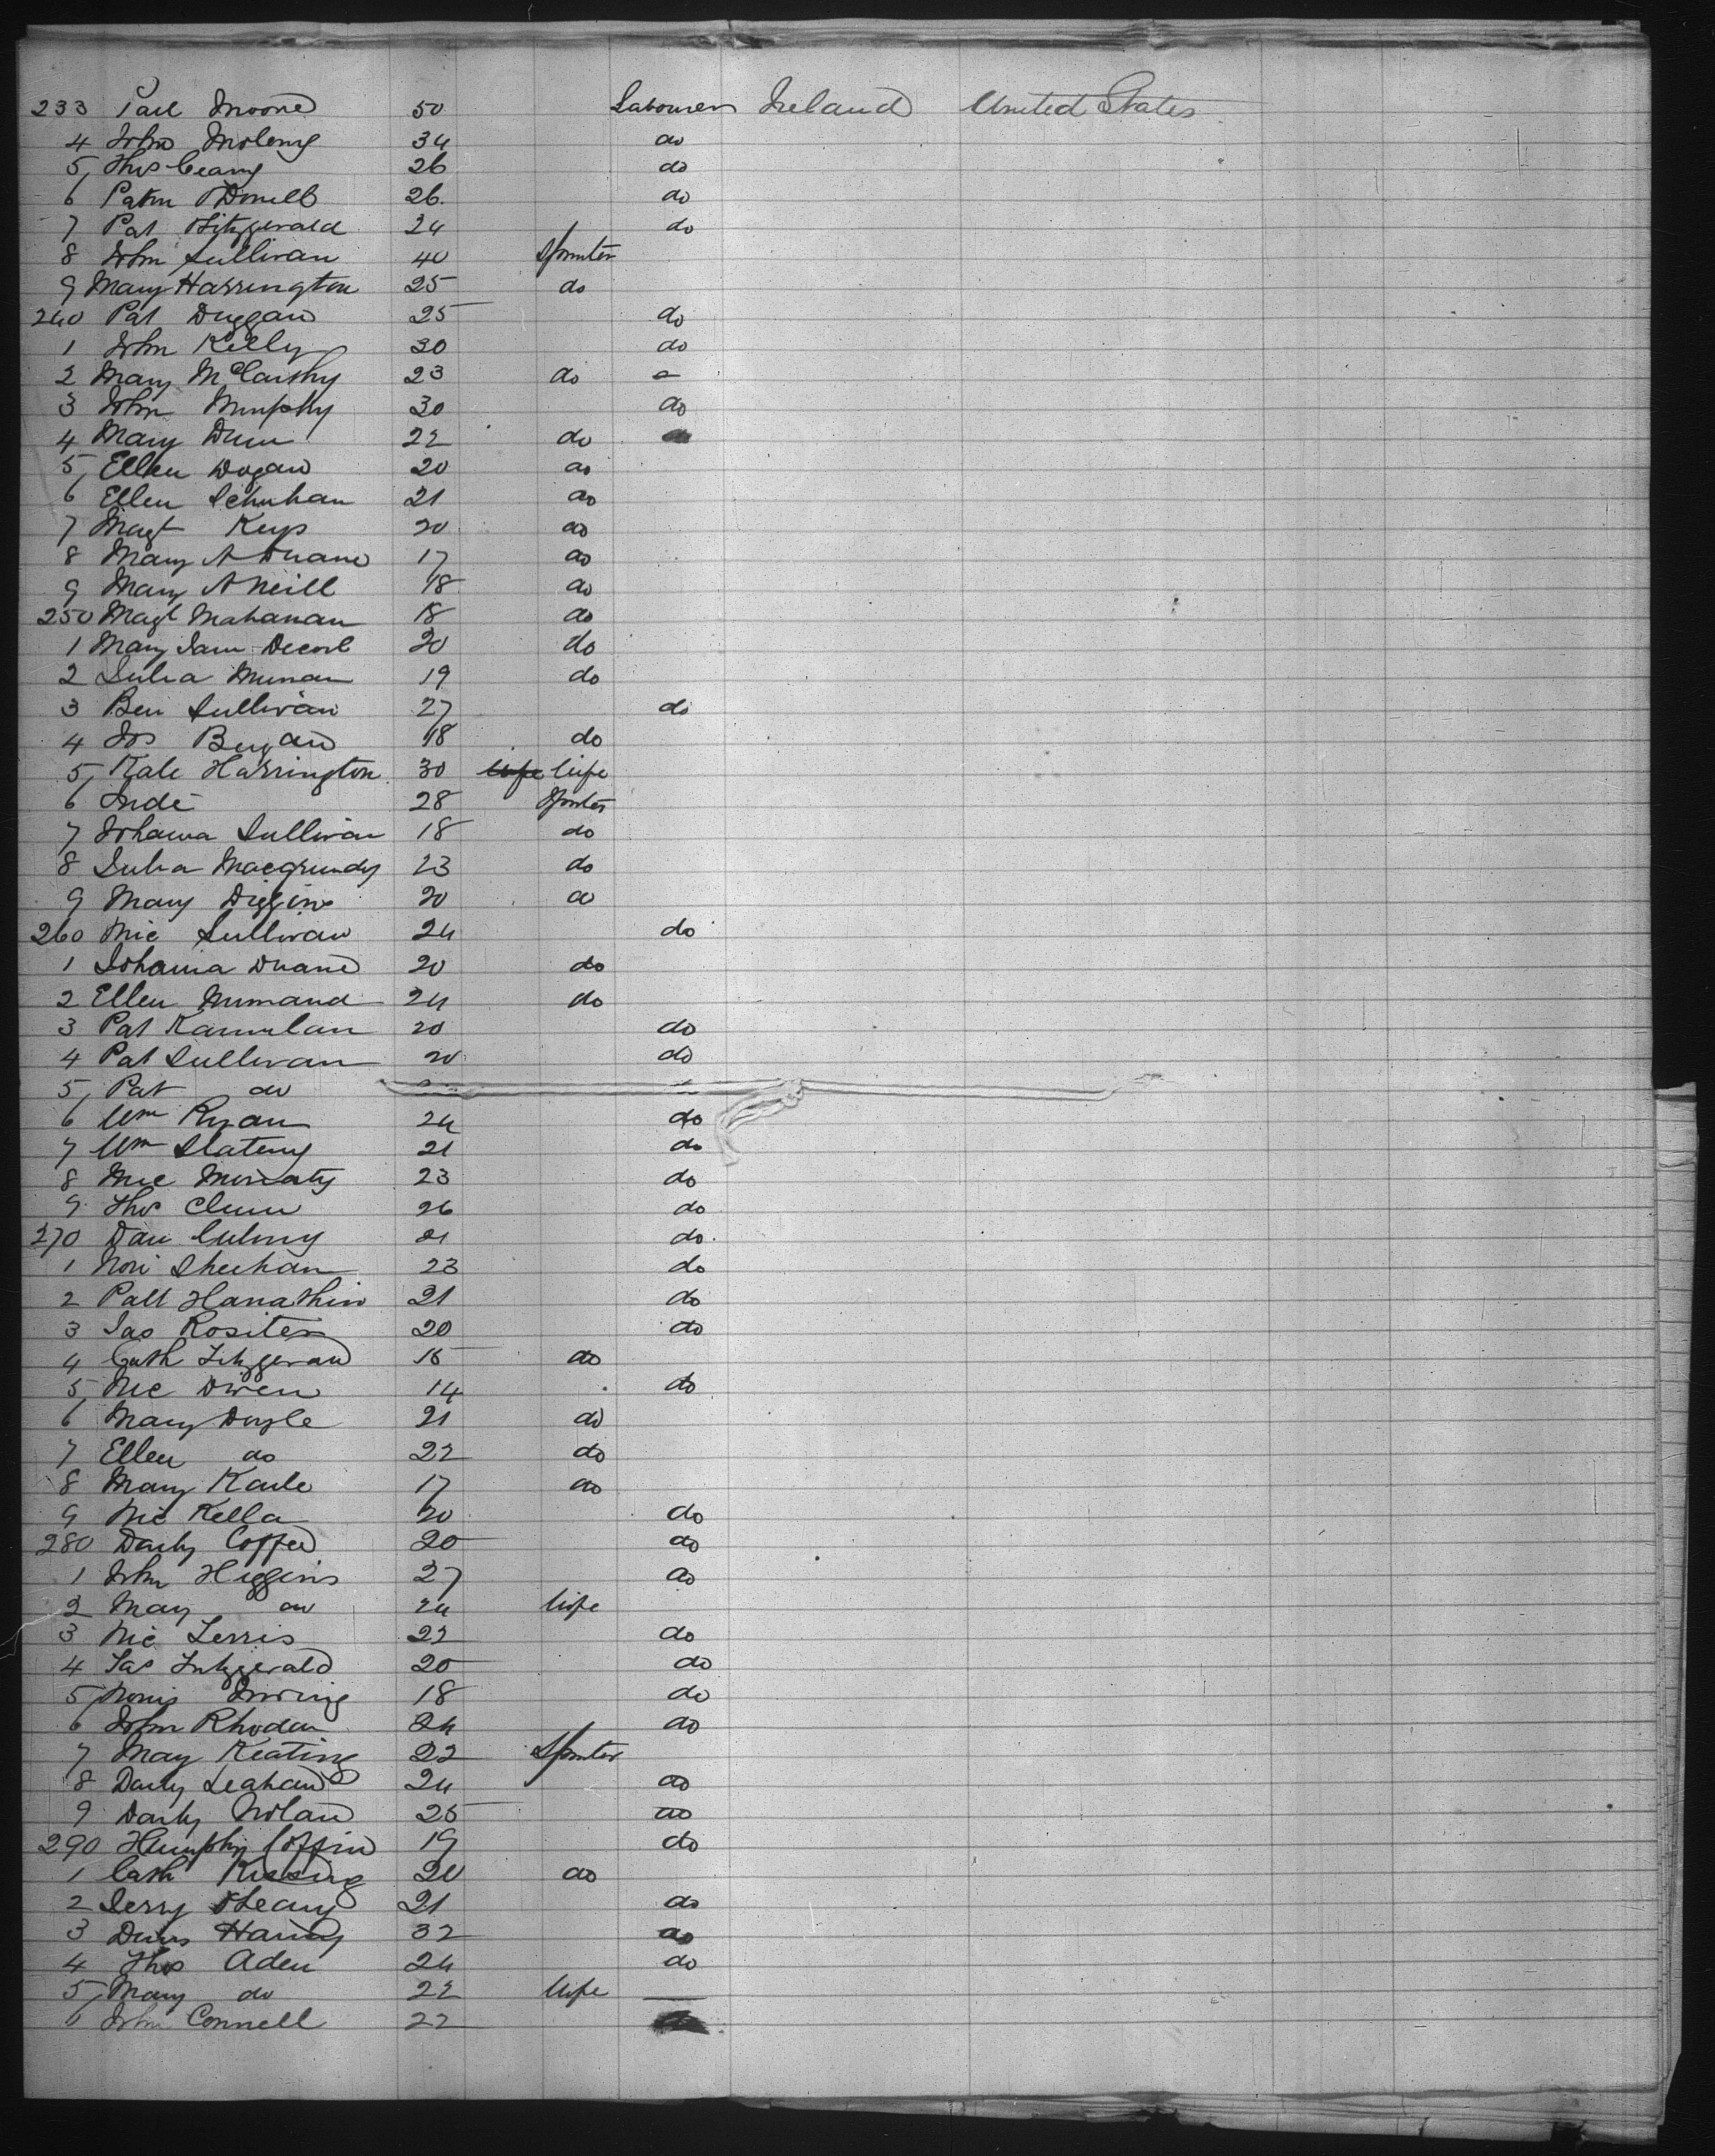 233 Patt Moore 50 Labourer Ireland United States
4 John Moleny 34 do
5 Thos Ceany 26 do
6 Patk O'Donell 26. do
7 Pat Fitzgerald 24 do
8 John Sullivan 40 Spinster
9 Mary Harrington 25 do
240 Pat Duggan 25 do
1 John Kelly 30 do
2 Mary McCarthy 23 do
3 John Murphy 30 do
4 Mary Dunn 22 do
5 Ellen Dogan 20 do
6 Ellen 21 do
7 Magt Keys 20 do
8 Mary A Duane 17 do
9 Mary A Neill 18 do
250 Magt Mahanan 18 do
1 Mary Jane 20 do
2 Julia 19 do
3 Ben Sullivan 27 do
4 Jos 18 do
5 Kate Harrington 30 wife wife
6 28 Spinster
7 Johanna Sullivan 18 do
8 Julia Macgrundy 23 do
9 Mary Diggins 20 do
260 Mic Sullivan 24 do
1 Johanna Duane 20 do
2 Ellen 24 do
3 Pat 20 do
4 Pat Sullivan 20 do
5 Pat do
6 Wm Ryan 24 do
7 Wm Slatery 21 do
8 Mic Moriaty 23 do
9 Thos 26 do
270 Dan 21 do
1 Nori Sheehan 23 do
2 Patt 21 do
3 Jas Rositer 20 do
4 Cath Fitzgerald 18 do
5 Mic Owen 14 do
6 Mary Doyle 21 do
7 Ellen do 22 do
8 Mary 17 do
9 Mic Kella 20 do
280 Darby Coffee 20 do
1 John Higgins 27 do
2 May do 24 Wife
3 Mic Ferris 22 do
4 Jas Fitzgerald 20 do
5 18 do
6 John Rhoden 24 do
7 May Keating 22 Spinster
8 Darby Leahan 24 do
9 Darby Nolan 25 do
290 Humphy Coffin 19 do
1 Cath 20 do
2 Jerry O'Leary 21 do
3 32 do
4 Thos Aden 24 do
5 Mary do 22 Wife
6 John Connell 22